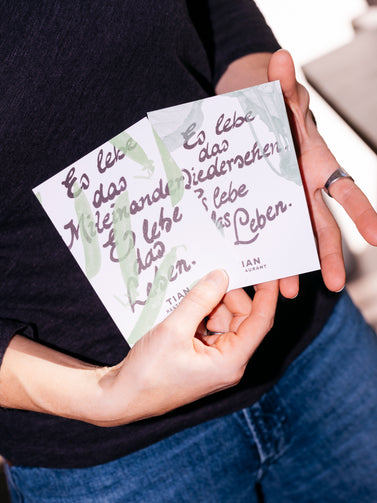 Es lebe
das
Miteinander
Es lebe
das
Leben.
TIAN
Es lebe
das
iedersehen!
Es lebe
das Leben.
IAN
AURANT